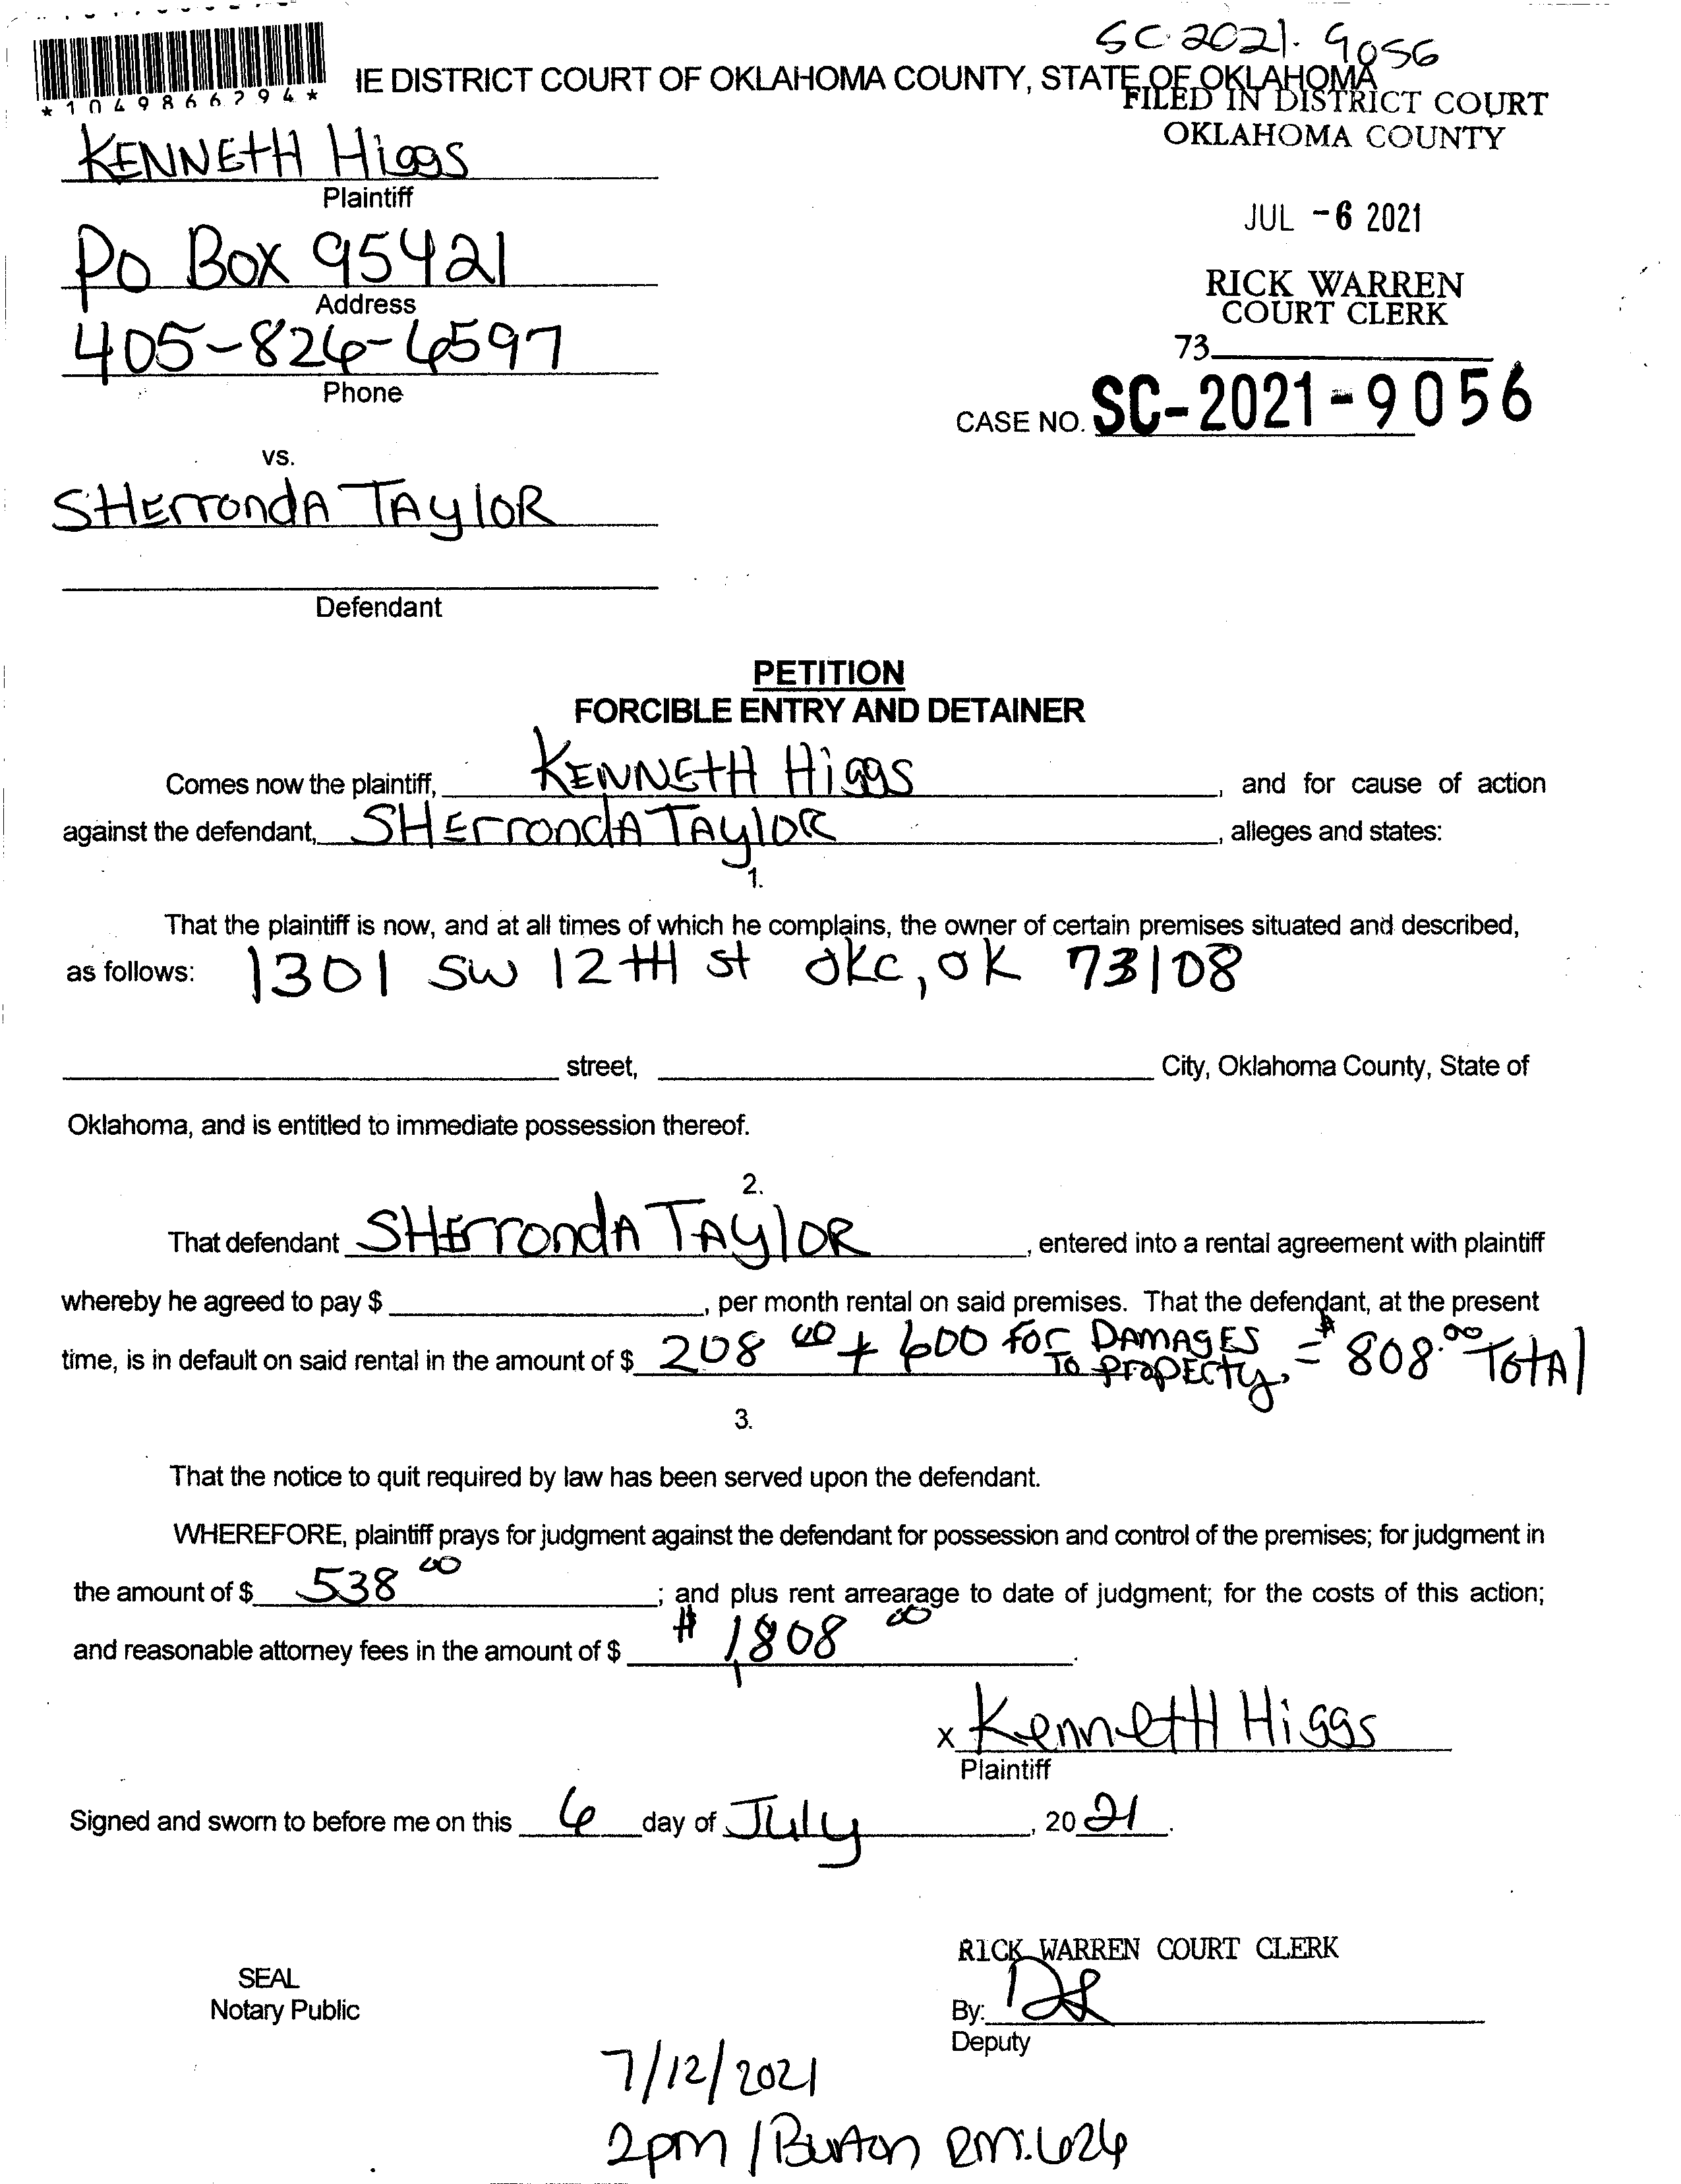 SC-2021-9056
IE DISTRICT COURT OF OKLAHOMA COUNTY, STATE OF OKLAHOMA
*1049866794*
FILED IN DISTRICT COURT
OKLAHOMA COUNTY
KENNETH Higgs
Plaintiff
JUL -6 2021
PO BOX 95421
Address
RICK WARREN
COURT CLERK
405-826-6597
Phone
73
CASE NO. SC-2021-9056
vs.
SHErrondA TAylOR
Defendant
PETITION
FORCIBLE ENTRY AND DETAINER
Comes now the plaintiff, KENNETH Higgs, and for cause of action
against the defendant, SHErrondA TAylOR, alleges and states:
1.
That the plaintiff is now, and at all times of which he complains, the owner of certain premises situated and described,
as follows: 1301 SW 12TH st OKC, OK 73108
street, City, Oklahoma County, State of
Oklahoma, and is entitled to immediate possession thereof.
2.
That defendant SHErrondA TAylOR, entered into a rental agreement with plaintiff
whereby he agreed to pay $, per month rental on said premises. That the defendant, at the present
time, is in default on said rental in the amount of $ 208 00 + 600 for DAMAGES TO PropErty, = $808.00 TotAl
3.
That the notice to quit required by law has been served upon the defendant.
WHEREFORE, plaintiff prays for judgment against the defendant for possession and control of the premises; for judgment in
the amount of $ 538 00; and plus rent arrearage to date of judgment; for the costs of this action;
and reasonable attorney fees in the amount of $ $1,808 00.
x KennetH Higgs
Plaintiff
Signed and sworn to before me on this 6 day of July, 2021.
RICK WARREN COURT CLERK
SEAL
Notary Public
By:
Deputy
7/12/2021
2pm / Burton RM. 626